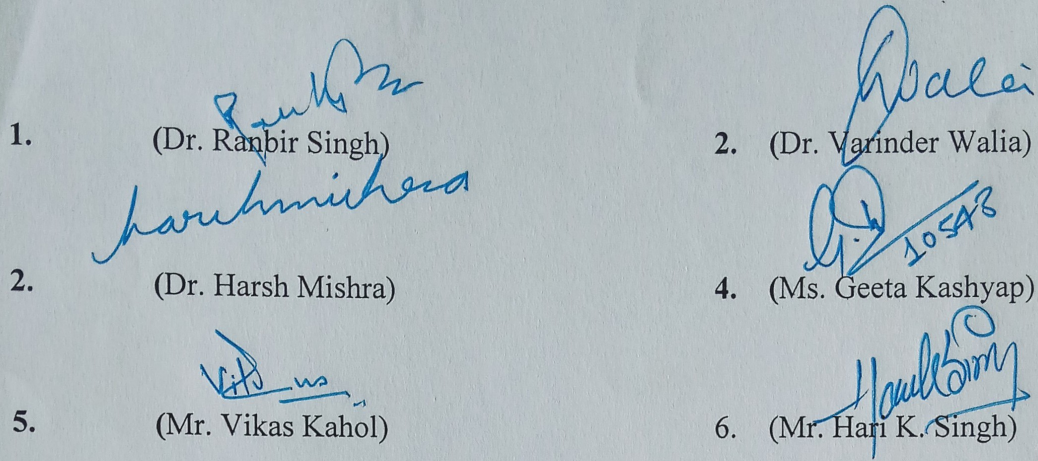 1. (Dr. Ranbir Singh) 2. (Dr. Varinder Walia)
harshmishra
10543
2. (Dr. Harsh Mishra) 4. (Ms. Geeta Kashyap)
5. (Mr. Vikas Kahol) 6. (Mr. Hari K. Singh)